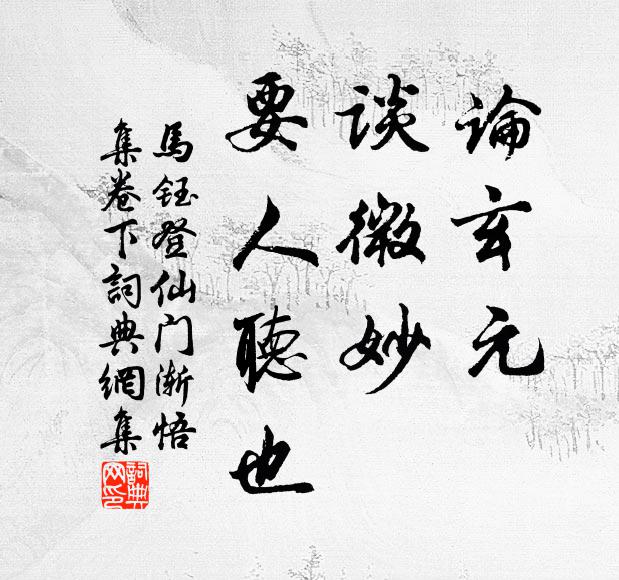 論玄元
谈微妙
要人聽也
馬鈺登仙门渐悟
集卷下詞典網集
詞典
网印